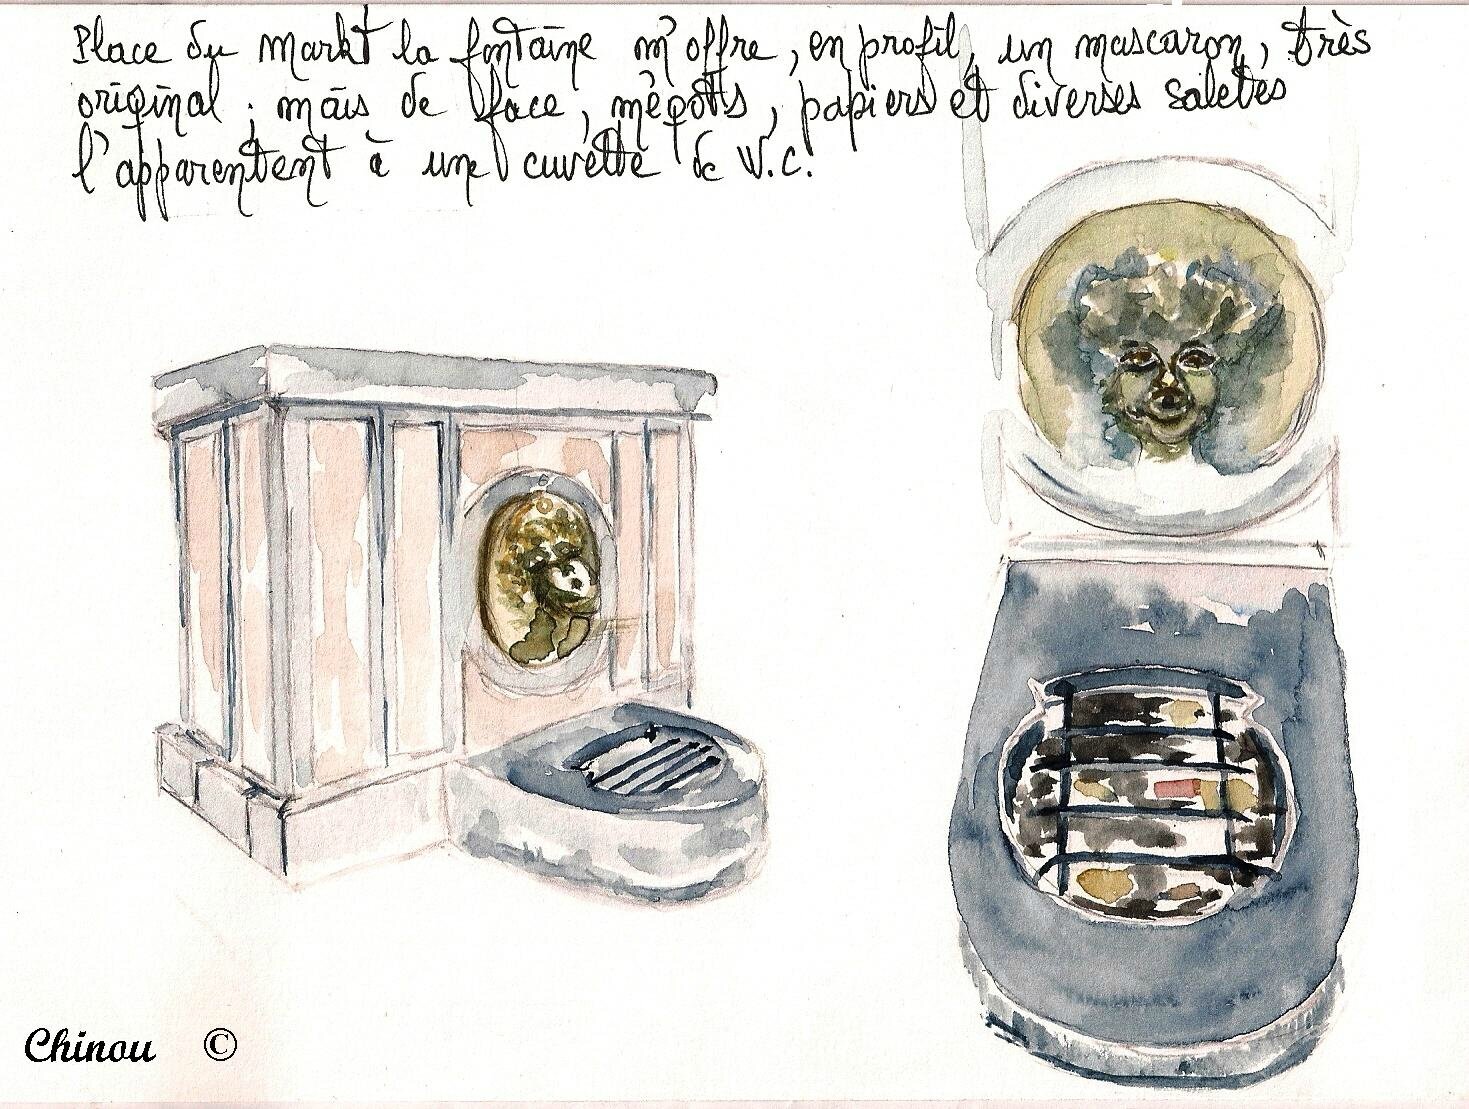 Place du Markt la fontaine m'offre, en profil, un mascaron, très
original ; mais de face, mégots, papiers et diverses saletés
l'apparentent à une cuvette de W.C.
Chinou ©